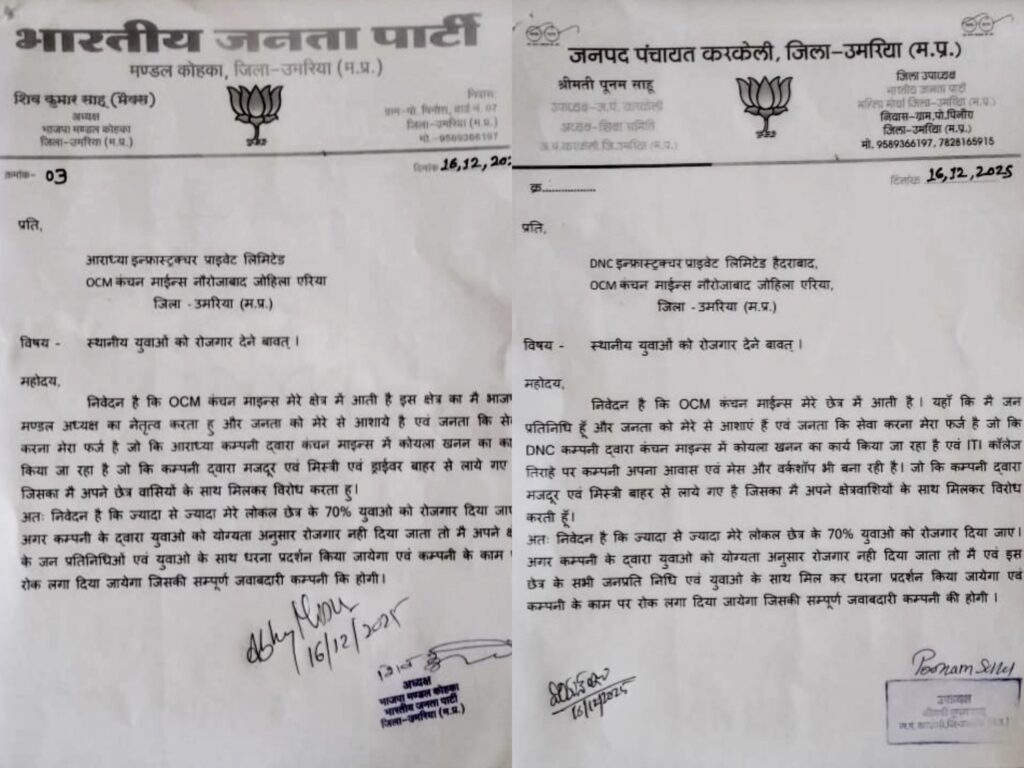 भारतीय जनता पार्टी
मण्डल कोहका, जिला-उमरिया (म.प्र.)
शिव कुमार साहू (मैक्स)
अध्यक्ष
भाजपा मण्डल कोहका
जिला-उमरिया (म.प्र.)
निवास.
ग्राम-पो. पिनौरा, वार्ड नं. 07
जिला-उमरिया (म.प्र.)
मो.-9589366197
क्रमांक- 03
दिनांक 16,12,202
प्रति,
आराध्या इन्फ्रास्ट्रक्चर प्राइवेट लिमिटेड
OCM कंचन माईन्स नौरोजाबाद जोहिला एरिया
जिला - उमरिया (म.प्र.)
विषय - स्थानीय युवाओं को रोजगार देने बावत् ।
महोदय,
निवेदन है कि OCM कंचन माइन्स मेरे क्षेत्र में आती है इस क्षेत्र का मै भाजप
मण्डल अध्यक्ष का नेतृत्व करता हु और जनता को मेरे से आशाये है एवं जनता कि सेव
करना मेरा फर्ज है जो कि आराध्या कम्पनी द्वारा कंचन माइन्स में कोयला खनन का का
किया जा रहा है जो कि कम्पनी द्वारा मजदूर एवं मिस्त्री एवं ड्राईवर बाहर से लाये गए
जिसका मै अपने छेत्र वासियों के साथ मिलकर विरोध करता हु।
अतः निवेदन है कि ज्यादा से ज्यादा मेरे लोकल छेत्र के 70% युवाओ को रोजगार दिया जाए
अगर कम्पनी के द्वारा युवाओ को योग्यता अनुसार रोजगार नही दिया जाता तो मै अपने क्ष
के जन प्रतिनिधिओं एवं युवाओ के साथ धरना प्रदर्शन किया जायेगा एवं कम्पनी के काम प
रोक लगा दिया जायेगा जिसकी सम्पूर्ण जवाबदारी कम्पनी कि होगी।
16/12/2025
अध्यक्ष
भाजपा मण्डल कोहका
भारतीय जनता पार्टी
जिला-उमरिया (म.प्र.)
जनपद पंचायत करकेली, जिला-उमरिया (म.प्र.)
श्रीमती पूनम साहू
उपाध्यक्ष-ज.पं. करकेली
अध्यक्ष-शिक्षा समिति
ज.पं.करकेली, जि.उमरिया (म.प्र.)
जिला उपाध्यक्ष
भारतीय जनता पार्टी
महिला मोर्चा जिला-उमरिया (म.प्र.)
निवास-ग्राम.पो.पिनौरा
जिला-उमरिया (म.प्र.)
मो. 9589366197, 7828165915
क्र.................
दिनांक 16,12,2025
प्रति,
DNC इन्फ्रास्ट्रक्चर प्राइवेट लिमिटेड हैदराबाद,
OCM कंचन माईन्स नौरोजाबाद जोहिला एरिया,
जिला - उमरिया (म.प्र.)
विषय - स्थानीय युवाओं को रोजगार देने बावत् ।
महोदय,
निवेदन है कि OCM कंचन माईन्स मेरे छेत्र में आती है । यहाँ कि मै जन
प्रतिनिधि हूँ और जनता को मेरे से आशाएं हैं एवं जनता कि सेवा करना मेरा फर्ज है जो कि
DNC कम्पनी द्वारा कंचन माइन्स में कोयला खनन का कार्य किया जा रहा है एवं ITI कॉलेज
तिराहे पर कम्पनी अपना आवास एवं मेस और वर्कशॉप भी बना रही है। जो कि कम्पनी द्वारा
मजदूर एवं मिस्त्री बाहर से लाये गए है जिसका मै अपने क्षेत्रवाशियों के साथ मिलकर विरोध
करती हूँ।
अतः निवेदन है कि ज्यादा से ज्यादा मेरे लोकल छेत्र के 70% युवाओ को रोजगार दिया जाए।
अगर कम्पनी के द्वारा युवाओ को योग्यता अनुसार रोजगार नही दिया जाता तो मै एवं इस
छेत्र के सभी जनप्रति निधि एवं युवाओ के साथ मिल कर धरना प्रदर्शन किया जायेगा एवं
कम्पनी के काम पर रोक लगा दिया जायेगा जिसकी सम्पूर्ण जवाबदारी कम्पनी की होगी ।
16/12/2025
Poonam Sahu
उपाध्यक्ष
श्रीमती पूनम साहू